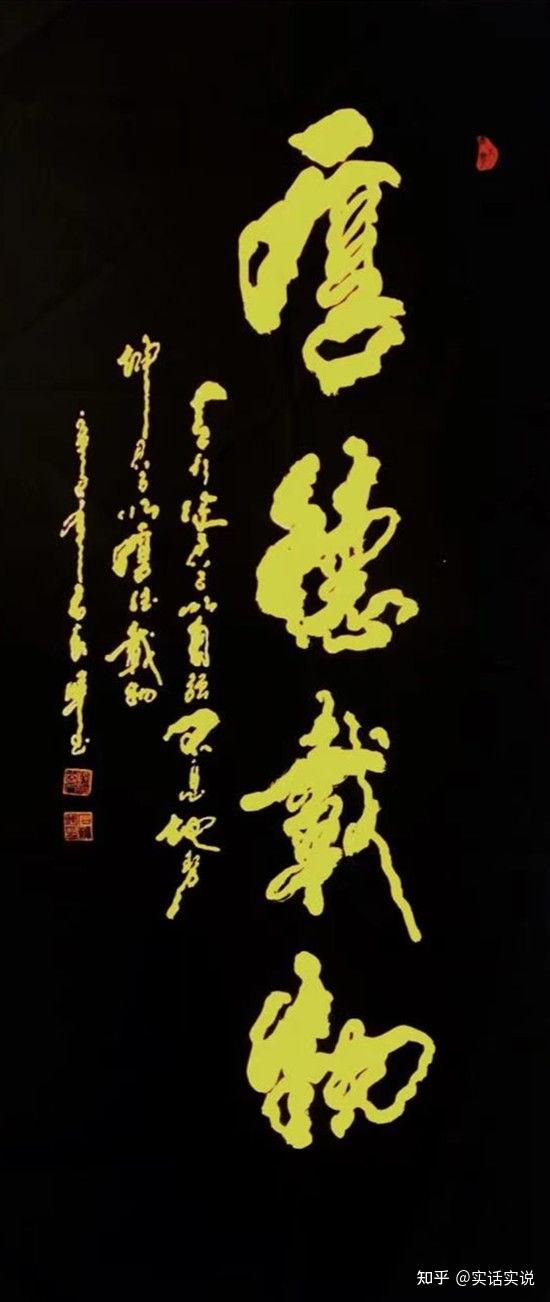 厚德载物
天行健君子以自强不息地势
坤君子以厚德载物
知乎 @实话实说